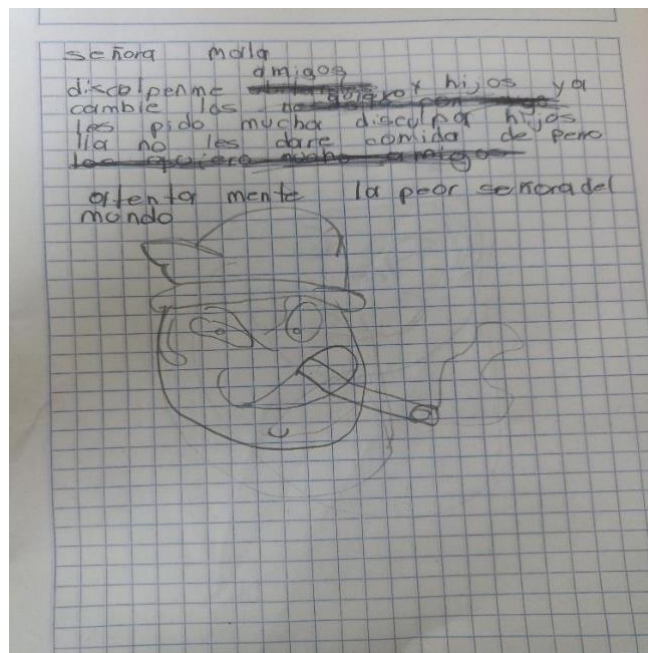 señora mala
amigos
discolpenme y hijos ya
cambie los
les pido mucha disculpa hijos
lla no les dare comida de pero
los quiero mucho amigos
atenta mente la peor señora del
mundo